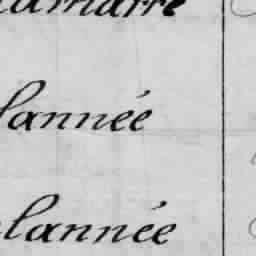 lannée
lannée